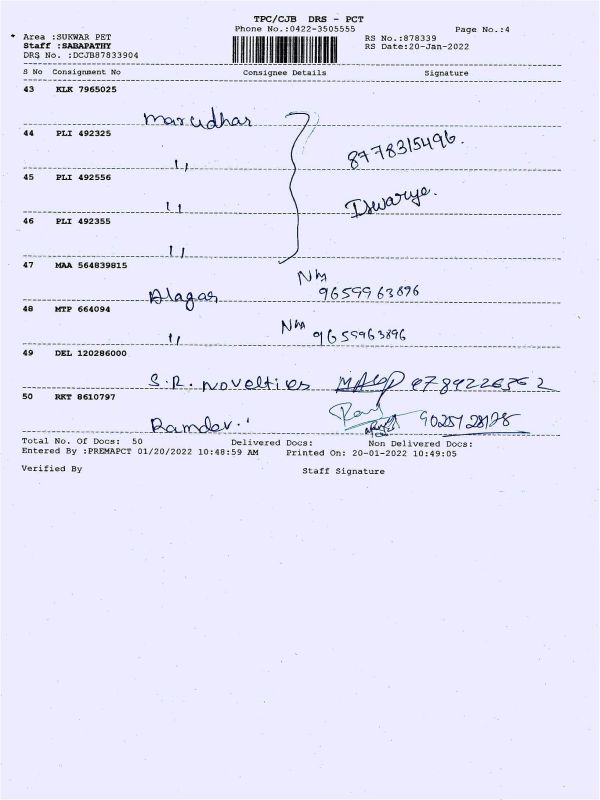 TPC/CJB DRS - PCT
Phone No.:0422-3505555 Page No.:4
* Area :SUKWAR PET RS No.:878339
Staff :SABAPATHY RS Date:20-Jan-2022
DRS No. :DCJB87833904
S No Consignment No Consignee Details Signature
43 KLK 7965025
Marudhar
44 PLI 492325 8778315496.
11
45 PLI 492556
Iswarya.
11
46 PLI 492355
11
47 MAA 564839815
Alagar 9659963896
48 MTP 664094
11 9659963896
49 DEL 120286000
S.R. Novelties
50 RKT 8610797
Ramdev.
Total No. Of Docs: 50 Delivered Docs: Non Delivered Docs:
Entered By :PREMAPCT 01/20/2022 10:48:59 AM Printed On: 20-01-2022 10:49:05
Verified By Staff Signature